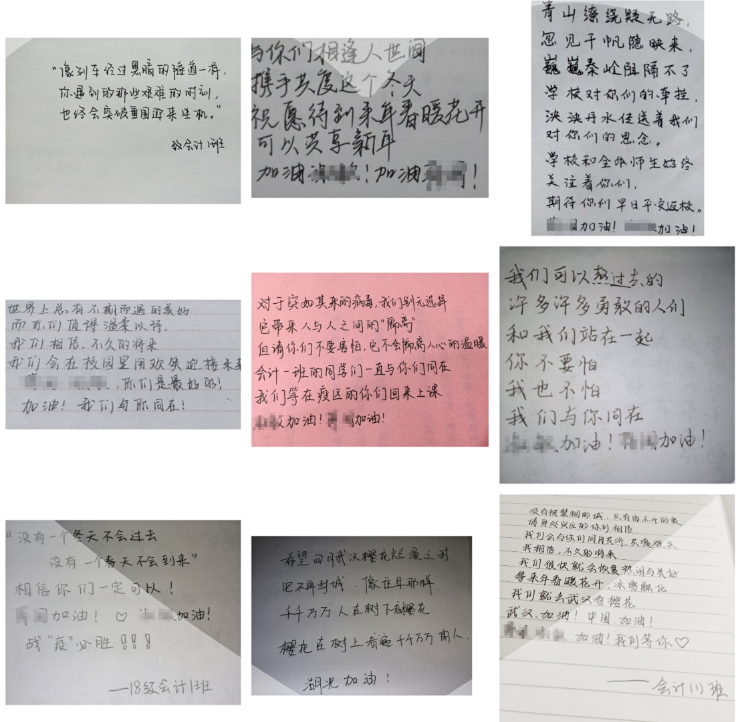 "像列车经过黑暗的隧道一样,
你遇到的那些艰难的时刻,
也终会突破重围游来生机。"
会计1班
与你们相逢人世间
携手共度这个冬天
祝愿待到来年春暖花开
可以共享新年
加油!加油!
青山缭绕疑无路,
忽见千帆隐映来,
巍巍秦岭阻隔不了
学校对你们的牵挂,
泱泱丹水传送着我们
对你们的思念。
学校和全体师生始终
关注着你们,
期待你们早日平安返校。
加油! 加油!
世界上总有不期而遇的美好
而你们值得温柔以待.
我们相信,不久的将来
我们会在校园里用欢笑迎接未来
,你们是最棒的!
加油! 我们与你同在!
对于突如其来的病毒,我们别无选择
它带来人与人之间的"隔离"
但请你们不要害怕,它不会隔离人心的温暖
会计一班的同学们一直与你们同在
我们等在疫区的你们回来上课
加油! 加油!
我们可以熬过去的
许多许多勇敢的人们
和我们站在一起
你不要怕
我也不怕
我们与你同在
加油! 加油!
"没有一个冬天不会过去
没有一个春天不会到来"
相信你们一定可以!
加油! ♡ 加油!
战"疫"必胜!!!
——18级会计1班
希望四月武汉樱花烂漫之时
已不再封城,像往年那样
千千万万人在树下看樱花
樱花在树上看遍千千万万的人
湖北加油!
没有被禁锢的城,只有离不开的爱
请身处疫区的你们相信
我们会与你们同舟共济,共度难关
我相信,不久的将来
我们很快就会恢复热闹与美好
等来年春暖花开,冰雪融化
我们就去武汉看樱花
武汉,加油! 中国 加油!
加油!我们等你♡
——会计(1)班